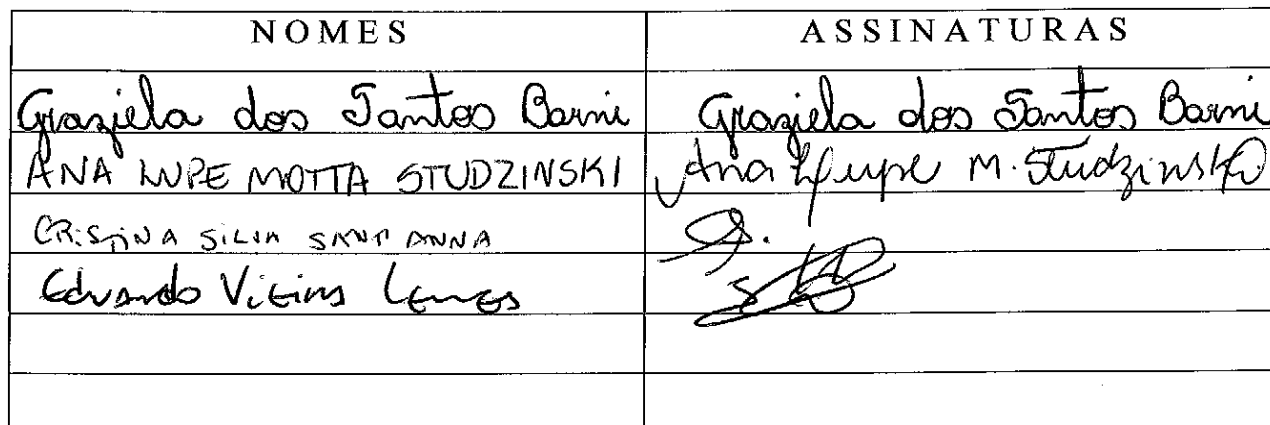 NOMES ASSINATURAS
Graziela dos Santos Barni Graziela dos Santos Barni
ANA LUPE MOTTA STUDZINSKI Ana Lupe M. Studzinski
CRISTINA SILVA SANT ANNA
Eduardo Vieira Lemes